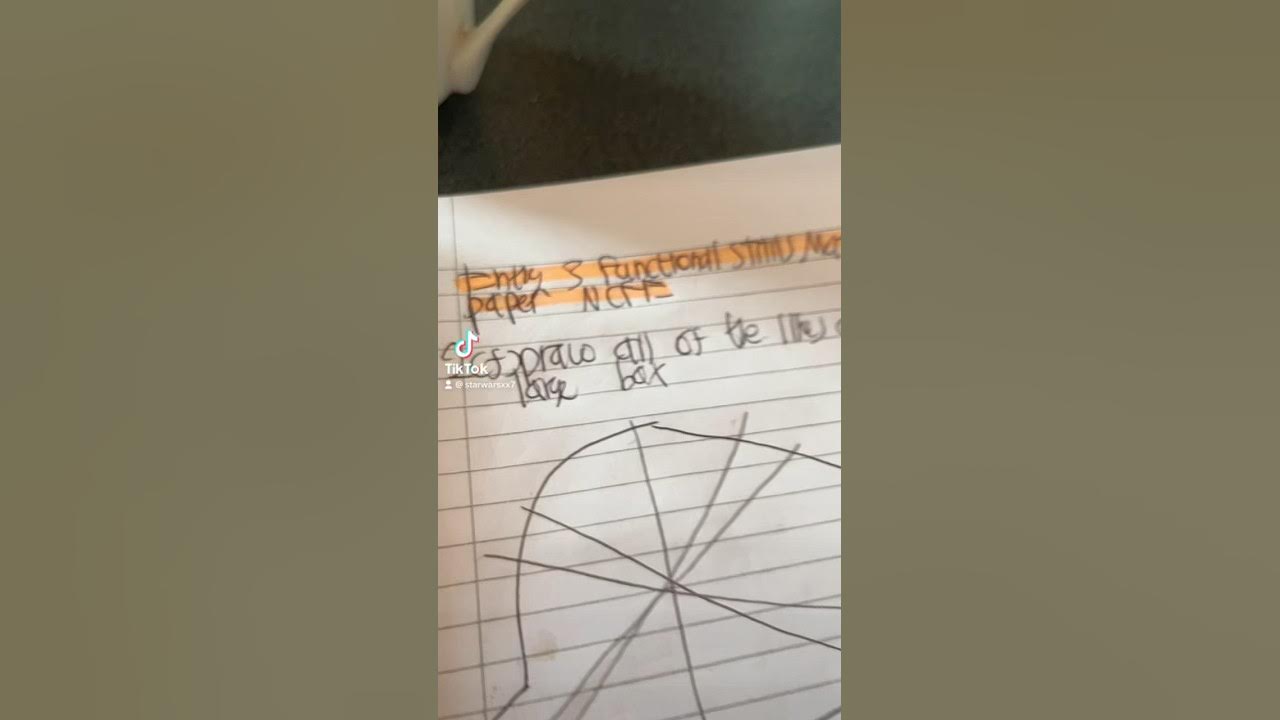 Entry 3 functional skills Mat
paper NCFE
draw all of the lines o
large box
TikTok
@starwarsxx7